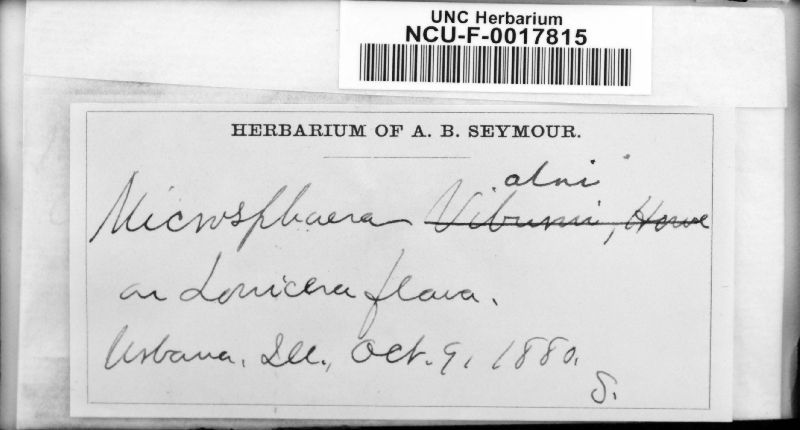 UNC Herbarium
NCU-F-0017815
HERBARIUM OF A. B. SEYMOUR.
alni
Microsphaera Viburni, Howe
on Lonicera flava.
Urbana, Ill., Oct. 9, 1880.
S.